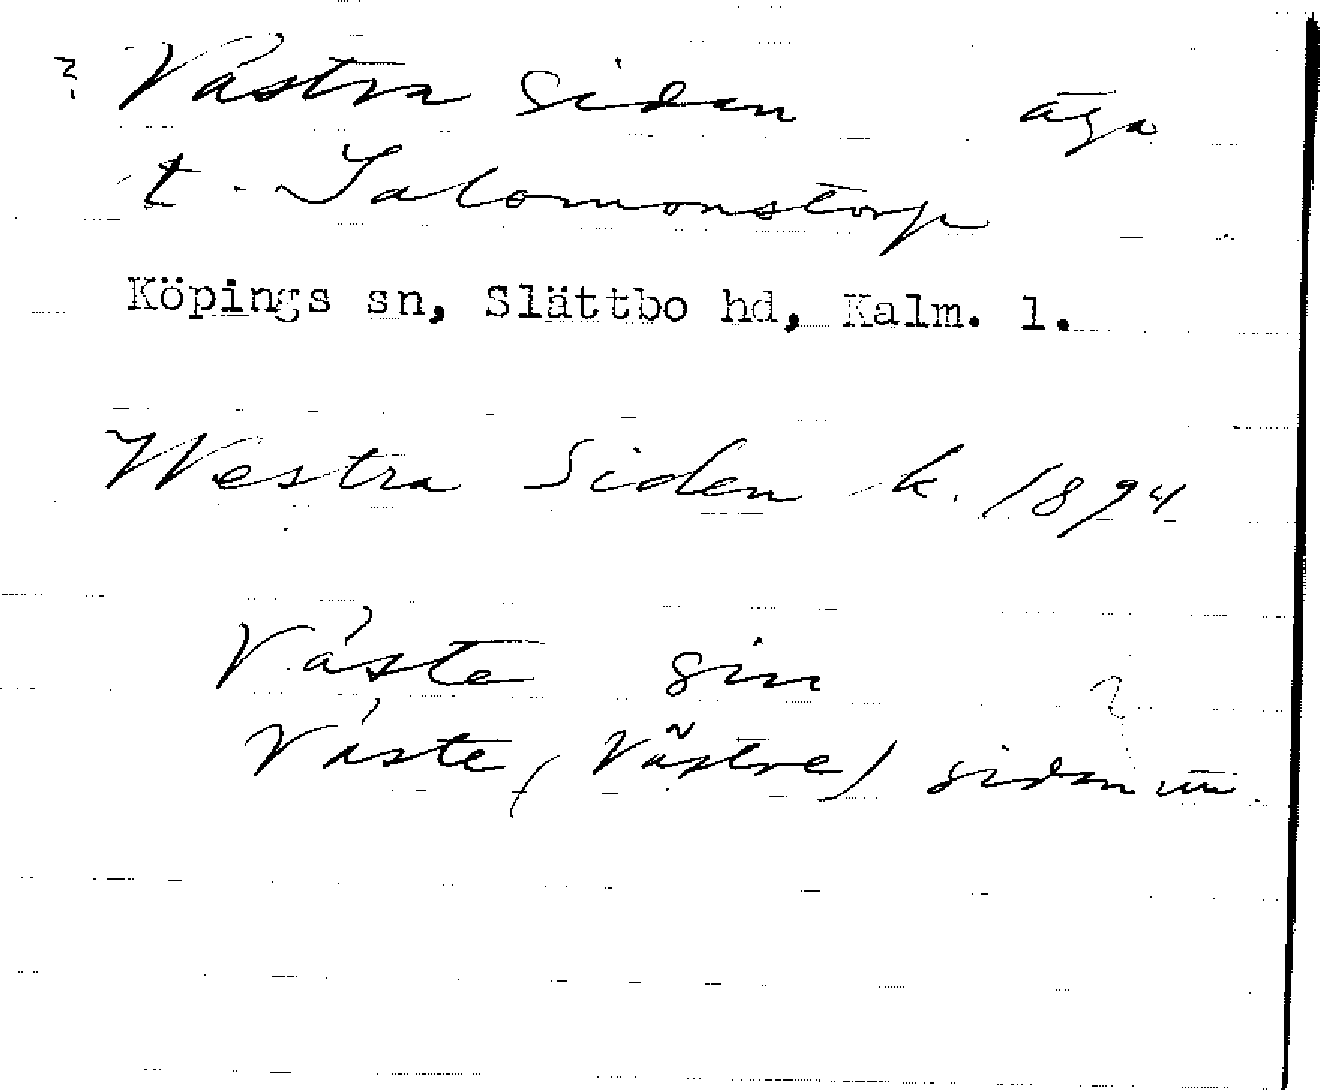 ? Västra sidan äga
t. Salomonstorp
Köpings sn, Slättbo hd, Kalm. l.
Westra Siden k. 1894
Väste sin
?
Väste (Västre) sidan